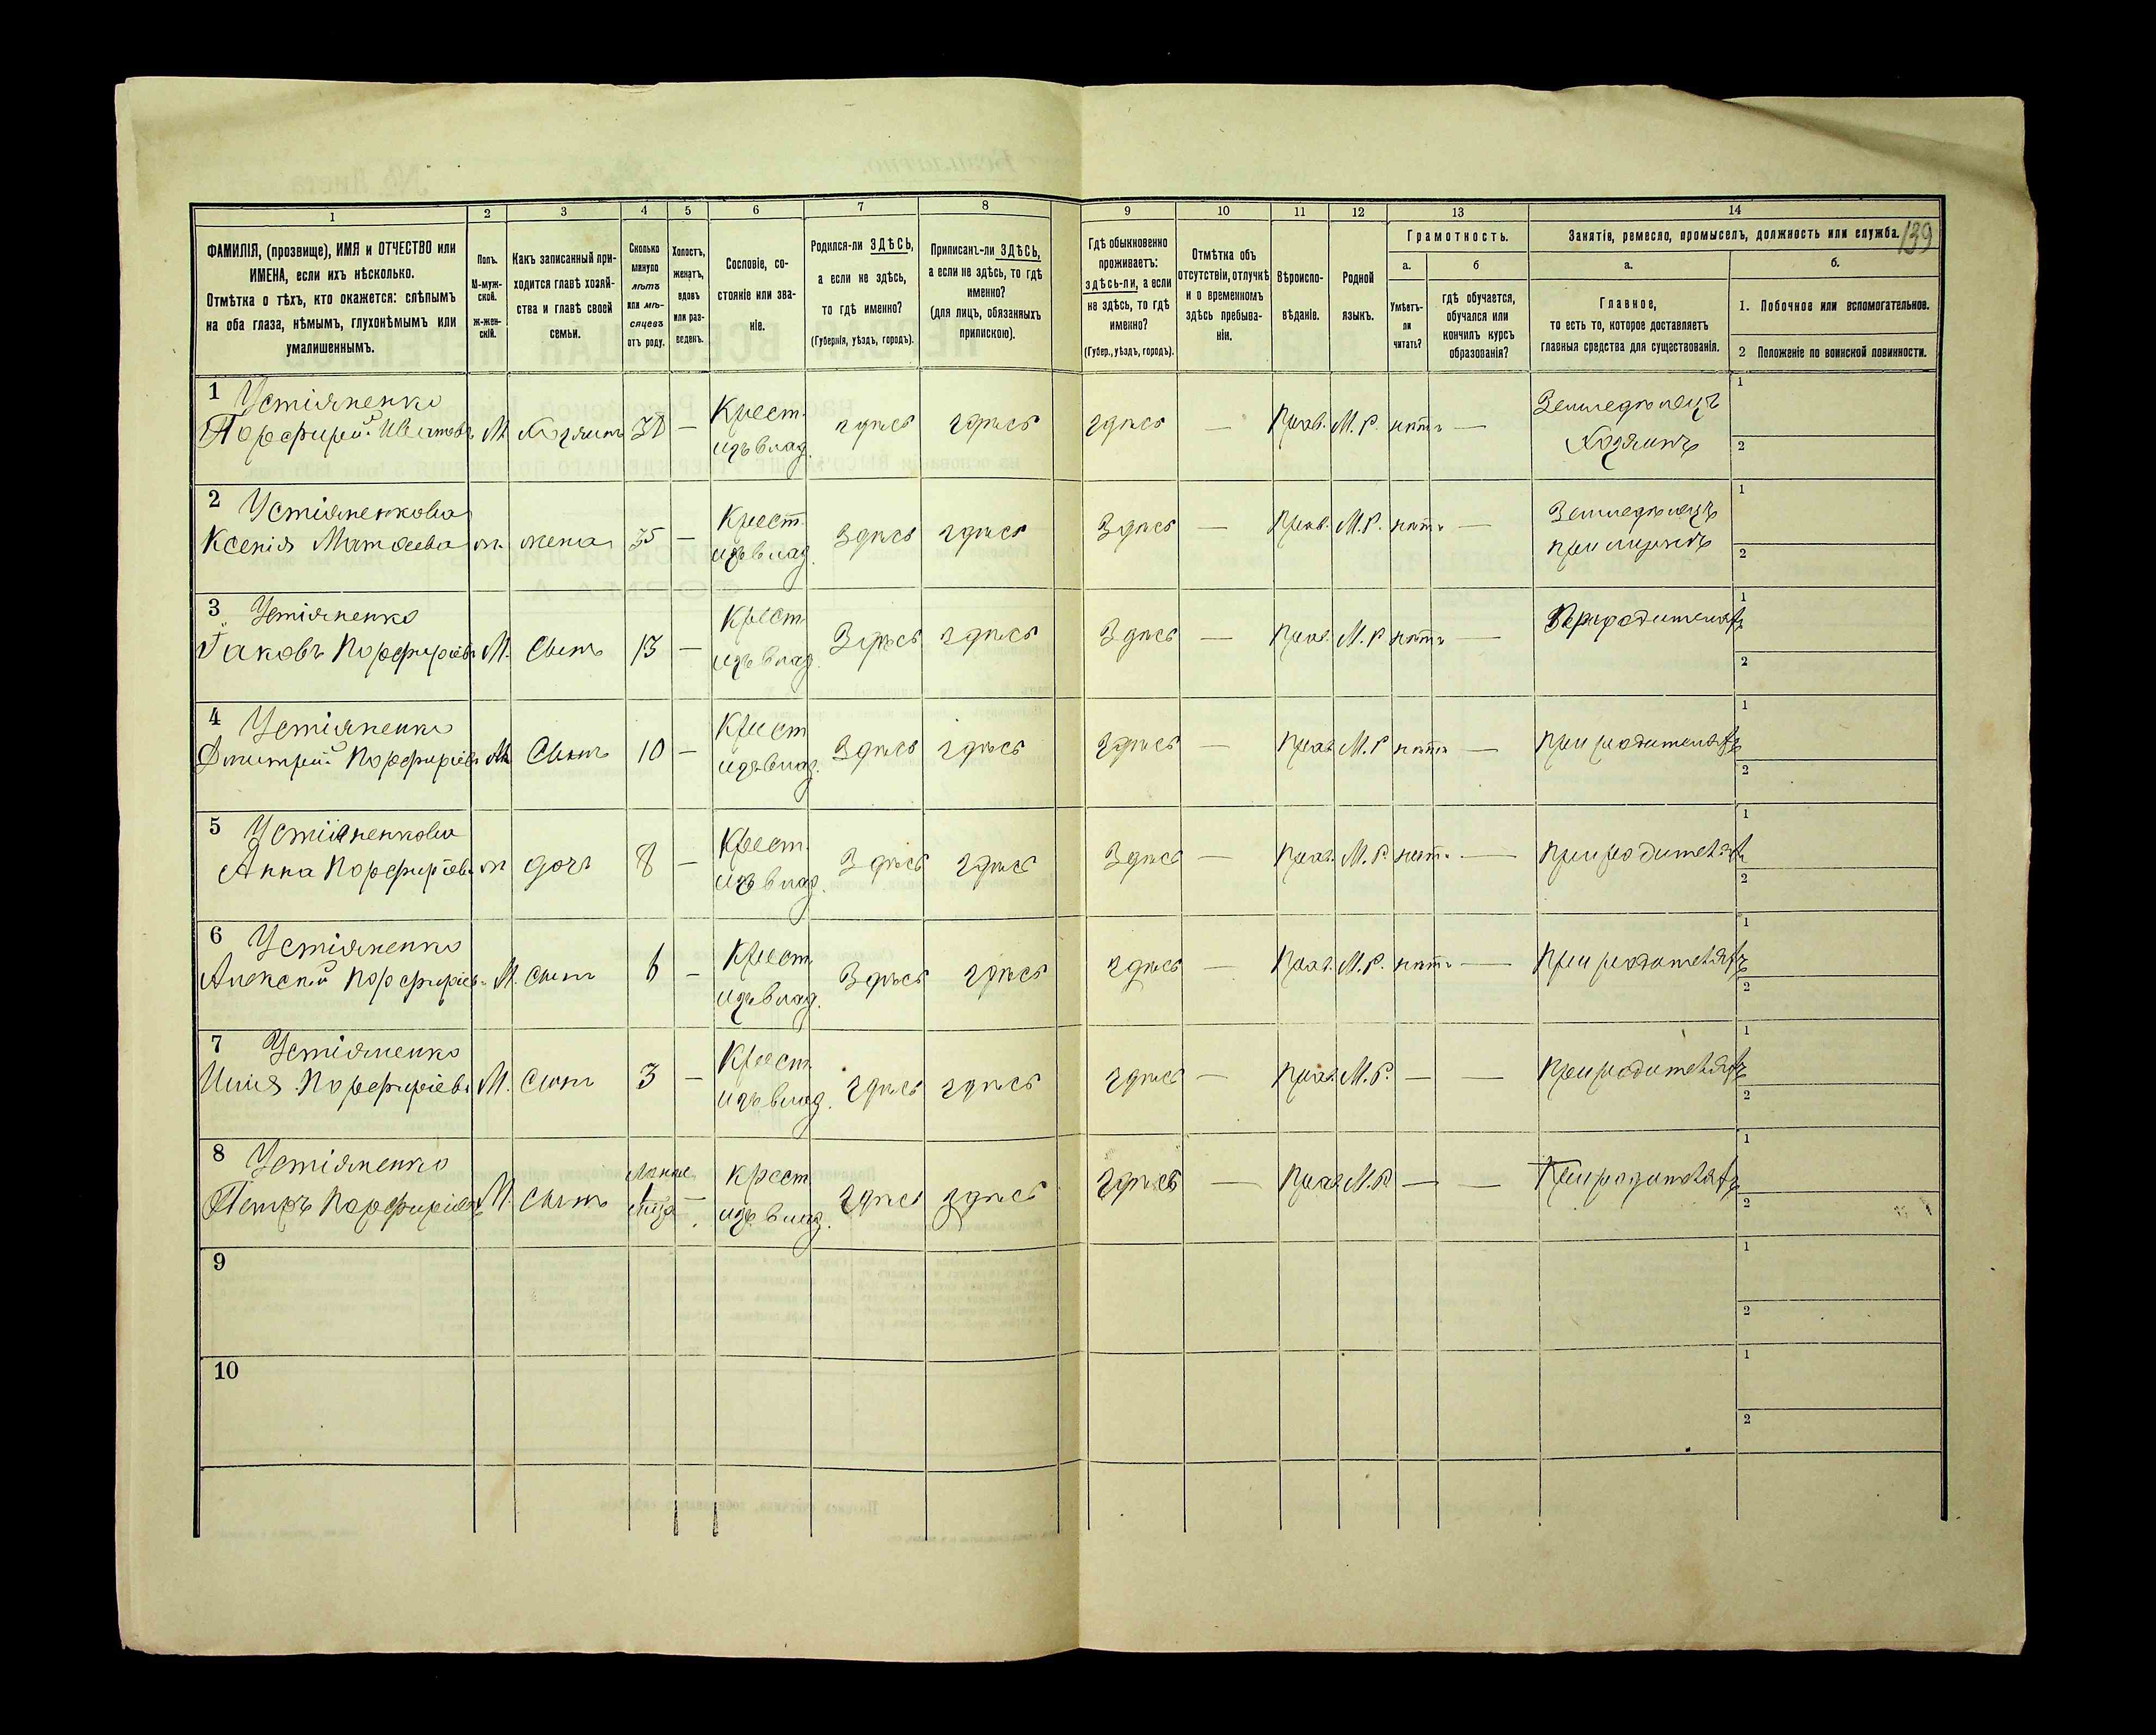 1
2
3
4
5
6
7
8
9
10
11
12
13
14
139
ФАМИЛІЯ, (прозвище), ИМЯ и ОТЧЕСТВО или
ИМЕНА, если ихъ нѣсколько.
Отмѣтка о тѣхъ, кто окажется: слѣпымъ
на оба глаза, нѣмымъ, глухонѣмымъ или
умалишеннымъ.
Полъ.
М-муж-
ской.
ж-жен-
скій.
Какъ записанный при-
ходится главѣ хозяй-
ства и главѣ своей
семьи.
Сколько
минуло
лѣтъ
или мѣ-
сяцевъ
отъ роду.
Холостъ,
женатъ,
вдовъ
или раз-
веденъ.
Сословіе, со-
стояніе или зва-
ніе.
Родился-ли ЗДѢСЬ,
а если не здѣсь,
то гдѣ именно?
(Губернія, уѣздъ, городъ).
Приписанъ-ли ЗДѢСЬ,
а если не здѣсь, то гдѣ
именно?
(для лицъ, обязанныхъ
припискою).
Гдѣ обыкновенно
проживаетъ:
здѣсь-ли, а если
не здѣсь, то гдѣ
именно?
(Губер., уѣздъ, городъ).
Отмѣтка объ
отсутствіи, отлучкѣ
и о временномъ
здѣсь пребыва-
ніи.
Вѣроиспо-
вѣданіе.
Родной
языкъ.
Грамотность.
а.
б
Умѣетъ-
ли
читать?
гдѣ обучается,
обучался или
кончилъ курсъ
образованія?
Занятіе, ремесло, промыселъ, должность или служба.
а.
б.
Главное,
то есть то, которое доставляетъ
главныя средства для существованія.
1. Побочное или вспомогательное.
2 Положеніе по воинской повинности.
1 Устіяненко Крест. Земледѣлецъ 1
Порфирій М Хозяинъ — изъ влад. здѣсь здѣсь здѣсь — Прав. М.Р. нѣтъ — Хозяинъ 2
2 Устіяненкова Крест. Земледѣлецъ 1
Ксенія Матѳеева ж. жена 35 — изъ влад. Здѣсь здѣсь Здѣсь — Прав. М.Р. нѣтъ — при мужѣ 2
3 Устіяненко Крест. При родителяхъ 1
Іаковъ Порфиріевъ М. Сынъ 13 — изъ влад. Здѣсь здѣсь Здѣсь — Прав. М.Р нѣтъ — 2
4 Устіяненко Крест 1
Дмитрій Порфиріевъ М Сынъ 10 — изъ влад. Здѣсь здѣсь здѣсь — Прав. М.Р нѣтъ — при родителяхъ 2
5 Устіяненкова Крест. 1
Анна Порфиріева ж дочь 8 — изъ влад. Здѣсь здѣсь Здѣсь — Прав. М.Р. нѣтъ — при родителяхъ 2
6 Устіяненко Крест. 1
Алексѣй Порфиріевъ М. сынъ 6 — изъ влад. Здѣсь здѣсь здѣсь — Прав. М.Р. нѣтъ — При родителяхъ 2
7 Устіяненко Крест. 1
Илія Порфиріевъ М. Сынъ 3 — изъ влад. здѣсь здѣсь здѣсь — Прав. М.Р. — — При родителяхъ 2
8 Устіяненко Крест 1
Петръ Порфиріевъ М. Сынъ — изъ влад. здѣсь здѣсь здѣсь — Прав. М.Р — — При родителяхъ 2
9 1
2
10 1
2